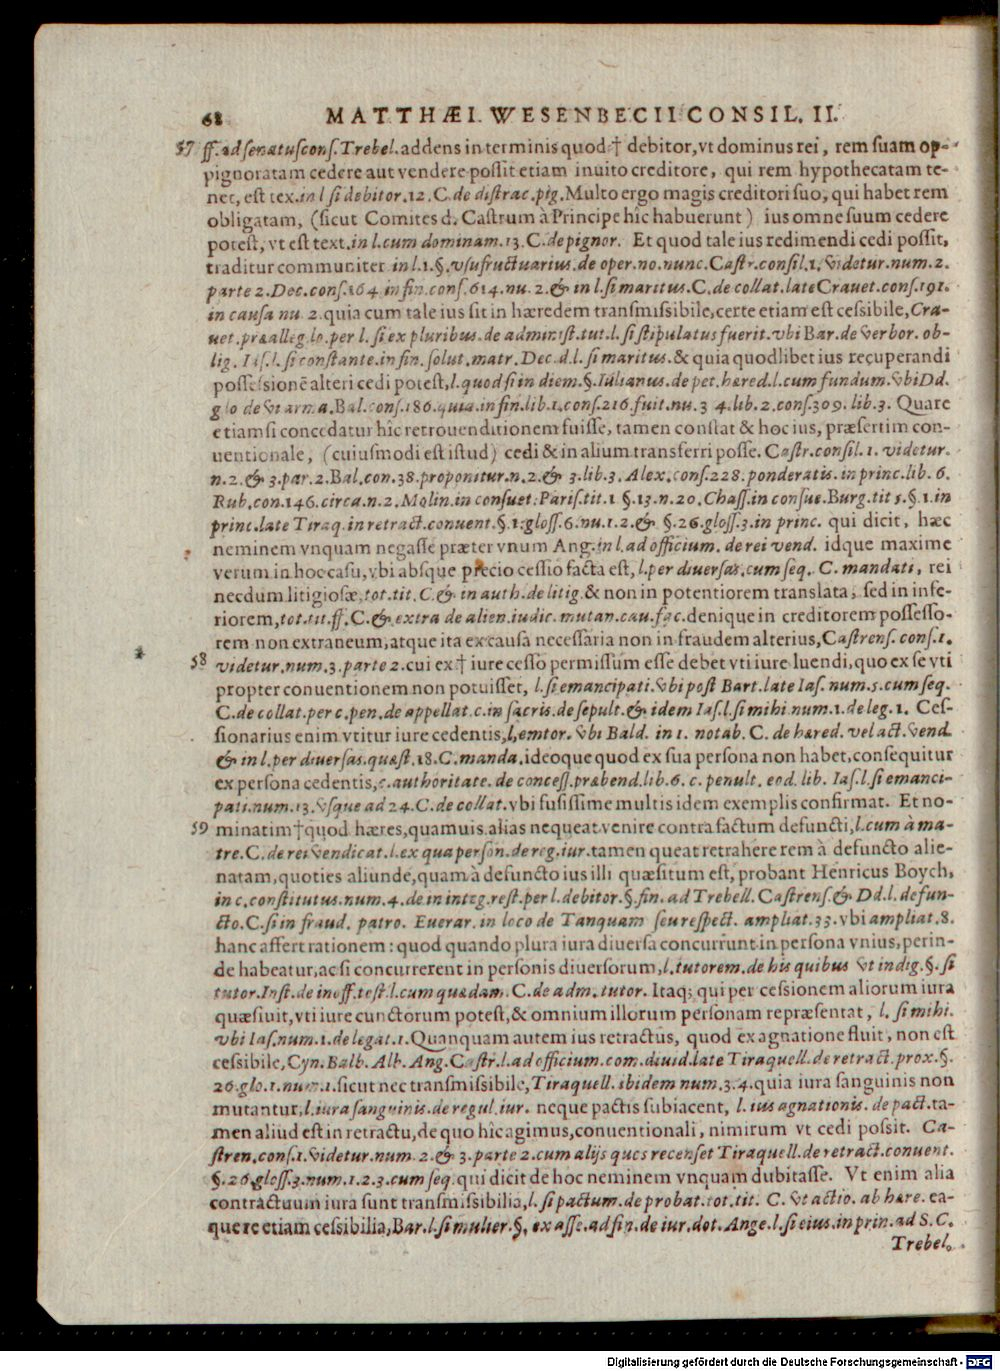 68 MATTHÆI. WESENBECII CONSIL. II.
57 ff. ad senatuscons. Trebel. addens in terminis quod † debitor, vt dominus rei, rem suam op-
pignoratam cedere aut vendere possit etiam inuito creditore, qui rem hypothecatam te-
net, est tex. in l si debitor. 12. C. de distrac. pig. Multo ergo magis creditori suo, qui habet rem
obligatam, (sicut Comites d. Castrum à Principe hîc habuerunt) ius omne suum cedere
potest, vt est text. in l. cum dominam. 13. C. de pignor. Et quod tale ius redimendi cedi possit,
traditur communiter in l. 1. §. vsufructuarius. de oper. no. nunc. Castr. consil. 1. videtur. num. 2.
parte 2. Dec. cons. 164. in fin. cons. 614. nu. 2. & in l. si maritus. C. de collat. late Crauet. cons. 191.
in causa nu. 2. quia cum tale ius sit in hæredem transmissibile, certe etiam est cessibile, Cra-
uet. præalleg. lo. per l. si ex pluribus. de administ. tut. l. si stipulatus fuerit. vbi Bar. de verbor. ob-
lig. Ias. l. si constante. in fin. solut. matr. Dec. d. l. si maritus. & quia quodlibet ius recuperandi
possessionē alteri cedi potest, l. quod si in diem. §. Iulianus. de pet. hæred. l. cum fundum. vbi Dd.
glo de vi arma. Bal. cons. 186. quia. in fin. lib. 1. cons. 216. fuit. nu. 3 4. lib. 2. cons. 309. lib. 3. Quare
etiamsi concedatur hîc retrouenditionem fuisse, tamen constat & hoc ius, præsertim con-
uentionale, (cuiusmodi est istud) cedi & in alium transferri posse. Castr. consil. 1. videtur.
n. 2. & 3. par. 2. Bal. con. 38. proponitur. n. 2. & 3. lib. 3. Alex. cons. 228. ponderatis. in princ. lib. 6.
Rub. con. 146. circa. n. 2. Molin. in consuet. Paris. tit. 1 §. 13. n. 20. Chass. in consue. Burg. tit 5. §. 1. in
princ. late Tiraq. in retract. conuent. §. 1. gloss. 6. nu. 1. 2. & §. 26. gloss. 3. in princ. qui dicit, hæc
neminem vnquam negasse præter vnum Ang. in l. ad officium. de rei vend. idque maxime
verum in hoc casu, vbi absque precio cessio facta est, l. per diuersas. cum seq. C. mandati, rei
necdum litigiosæ, tot. tit. C. & in auth. de litig. & non in potentiorem translata, sed in infe-
riorem, tot. tit. ff. C. & extra de alien. iudic. mutan. cau. fac. denique in creditorem possesso-
rem non extraneum, atque ita ex causa necessaria non in fraudem alterius, Castrens. cons. 1.
58 videtur. num. 3. parte 2. cui ex † iure cesso permissum esse debet vti iure luendi, quo ex se vti
propter conuentionem non potuisset, l. si emancipati. vbi post Bart. late Ias. num. 5. cum seq.
C. de collat. per c. pen. de appellat. c. in sacris. de sepult. & idem Ias. l. si mihi. num. 1. de leg. 1. Ces-
sionarius enim vtitur iure cedentis, l. emtor. vbi Bald. in 1. notab. C. de hæred. vel act. vend.
& in l. per diuersas. quæst. 18. C. manda. ideoque quod ex sua persona non habet, consequitur
ex persona cedentis, c. authoritate. de concess. præbend. lib. 6. c. penult. eod. lib. Ias. l. si emanci-
pati. num. 13. vsque ad 24. C. de collat. vbi fusissime multis idem exemplis confirmat. Et no-
59 minatim † quod hæres, quamuis alias nequeat venire contra factum defuncti, l. cum à ma-
tre. C. de rei vendicat. l. ex qua person. de reg. iur. tamen queat retrahere rem à defuncto alie-
natam, quoties aliunde, quam à defuncto ius illi quæsitum est, probant Henricus Boych,
in c. constitutus. num. 4. de in integ. rest. per l. debitor. §. fin. ad Trebell. Castrens. & Dd. l. defun-
cto. C. si in fraud. patro. Euerar. in loco de Tanquam seu respect. ampliat. 33. vbi ampliat. 8.
hanc affert rationem: quod quando plura iura diuersa concurrunt in persona vnius, perin-
de habeatur, ac si concurrerent in personis diuersorum, l. tutorem. de his quibus vt indig. §. si
tutor. Inst. de inoff. test. l. cum quædam. C. de adm. tutor. Itaq; qui per cessionem aliorum iura
quæsiuit, vti iure cunctorum potest, & omnium illorum personam repræsentat, l. si mihi.
vbi Ias. num. 1. de legat. 1. Quanquam autem ius retractus, quod ex agnatione fluit, non est
cessibile, Cyn. Balb. Alb. Ang. Castr. l. ad officium. com. diuid. late Tiraquell. de retract. prox. §.
26. glo. 1. num. 1. sicut nec transmissibile, Tiraquell. ibidem num. 3. 4. quia iura sanguinis non
mutantur, l. iura sanguinis. de regul. iur. neque pactis subiacent, l. ius agnationis. de pact. ta-
men aliud est in retractu, de quo hîc agimus, conuentionali, nimirum vt cedi possit. Ca-
stren. cons. 1. videtur. num. 2. & 3. parte 2. cum alijs quos recenset Tiraquell. de retract. conuent.
§. 26. gloss. 3. num. 1. 2. 3. cum seq. qui dicit de hoc neminem vnquam dubitasse. Vt enim alia
contractuum iura sunt transmissibilia, l. si pactum. de probat. tot. tit. C. vt actio. ab hære. ea-
que re etiam cessibilia, Bar. l. si mulier. §. ex asse. ad fin. de iur. dot. Ange. l. si eius. in prin. ad S. C.
Trebel.
Digitalisierung gefördert durch die Deutsche Forschungsgemeinschaft - DFG